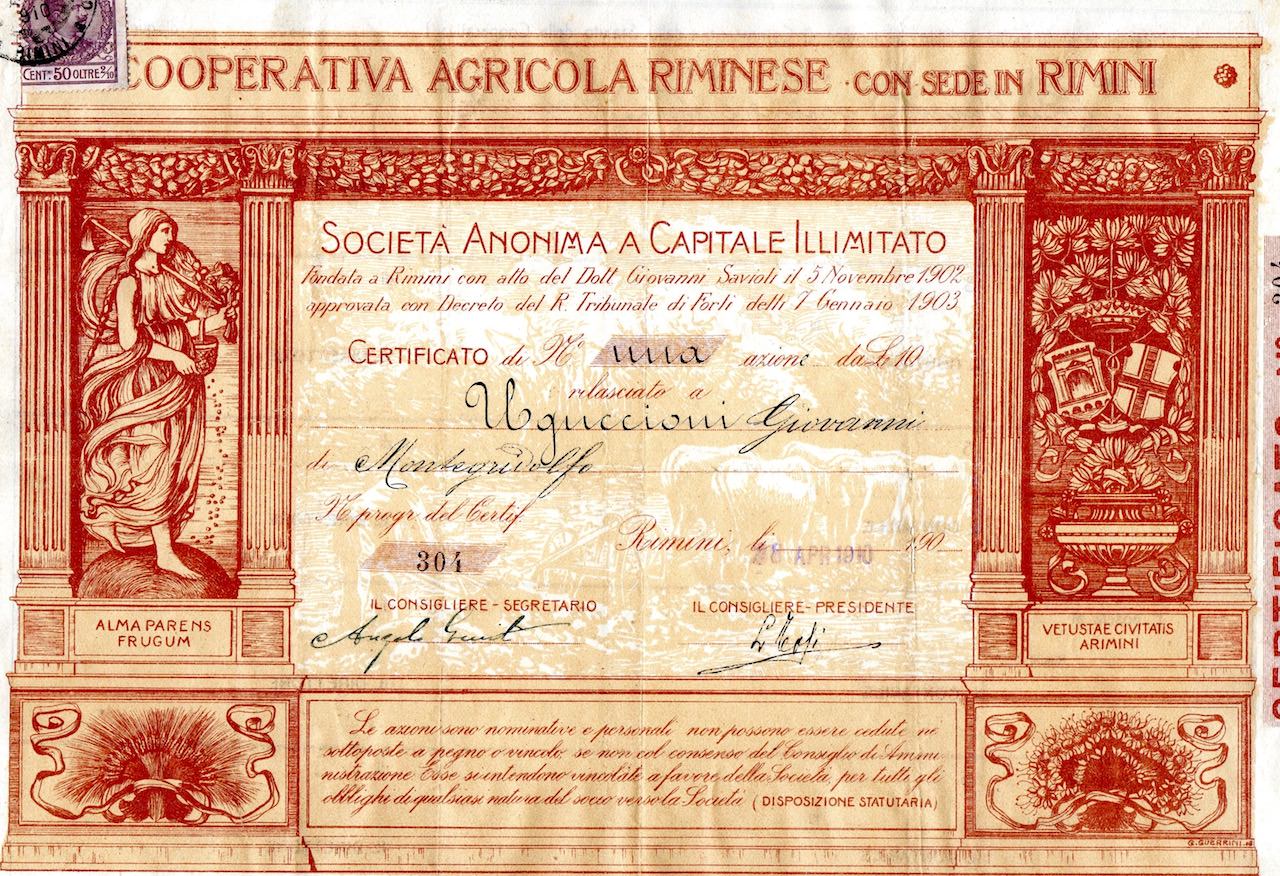 CENT. 50 OLTRE 2/10
COOPERATIVA AGRICOLA RIMINESE · CON SEDE IN RIMINI
SOCIETÀ ANONIMA A CAPITALE ILLIMITATO
Fondata a Rimini con atto del Dott Giovanni Savioli il 5 Novembre 1902
approvata con Decreto del R. Tribunale di Forlì delli 7 Gennaio 1903
CERTIFICATO di N° una azione da L 10
rilasciato a
Uguccioni Giovanni
di Montegridolfo
N. progr. del Certif.
304
Rimini, li 28 APR 1910 190
IL CONSIGLIERE - SEGRETARIO
IL CONSIGLIERE - PRESIDENTE
Angelo
L Tosi
ALMA PARENS
FRUGUM
VETUSTAE CIVITATIS
ARIMINI
Le azioni sono nominative e personali non possono essere cedute ne
sottoposte a pegno o vincolo, se non col consenso del Consiglio di Ammi
nistrazione Esse si intendono vincolate a favore della Società, per tutti gli
obblighi di qualsiasi natura del socio verso la Società (DISPOSIZIONE STATUTARIA)
G. GUERRINI